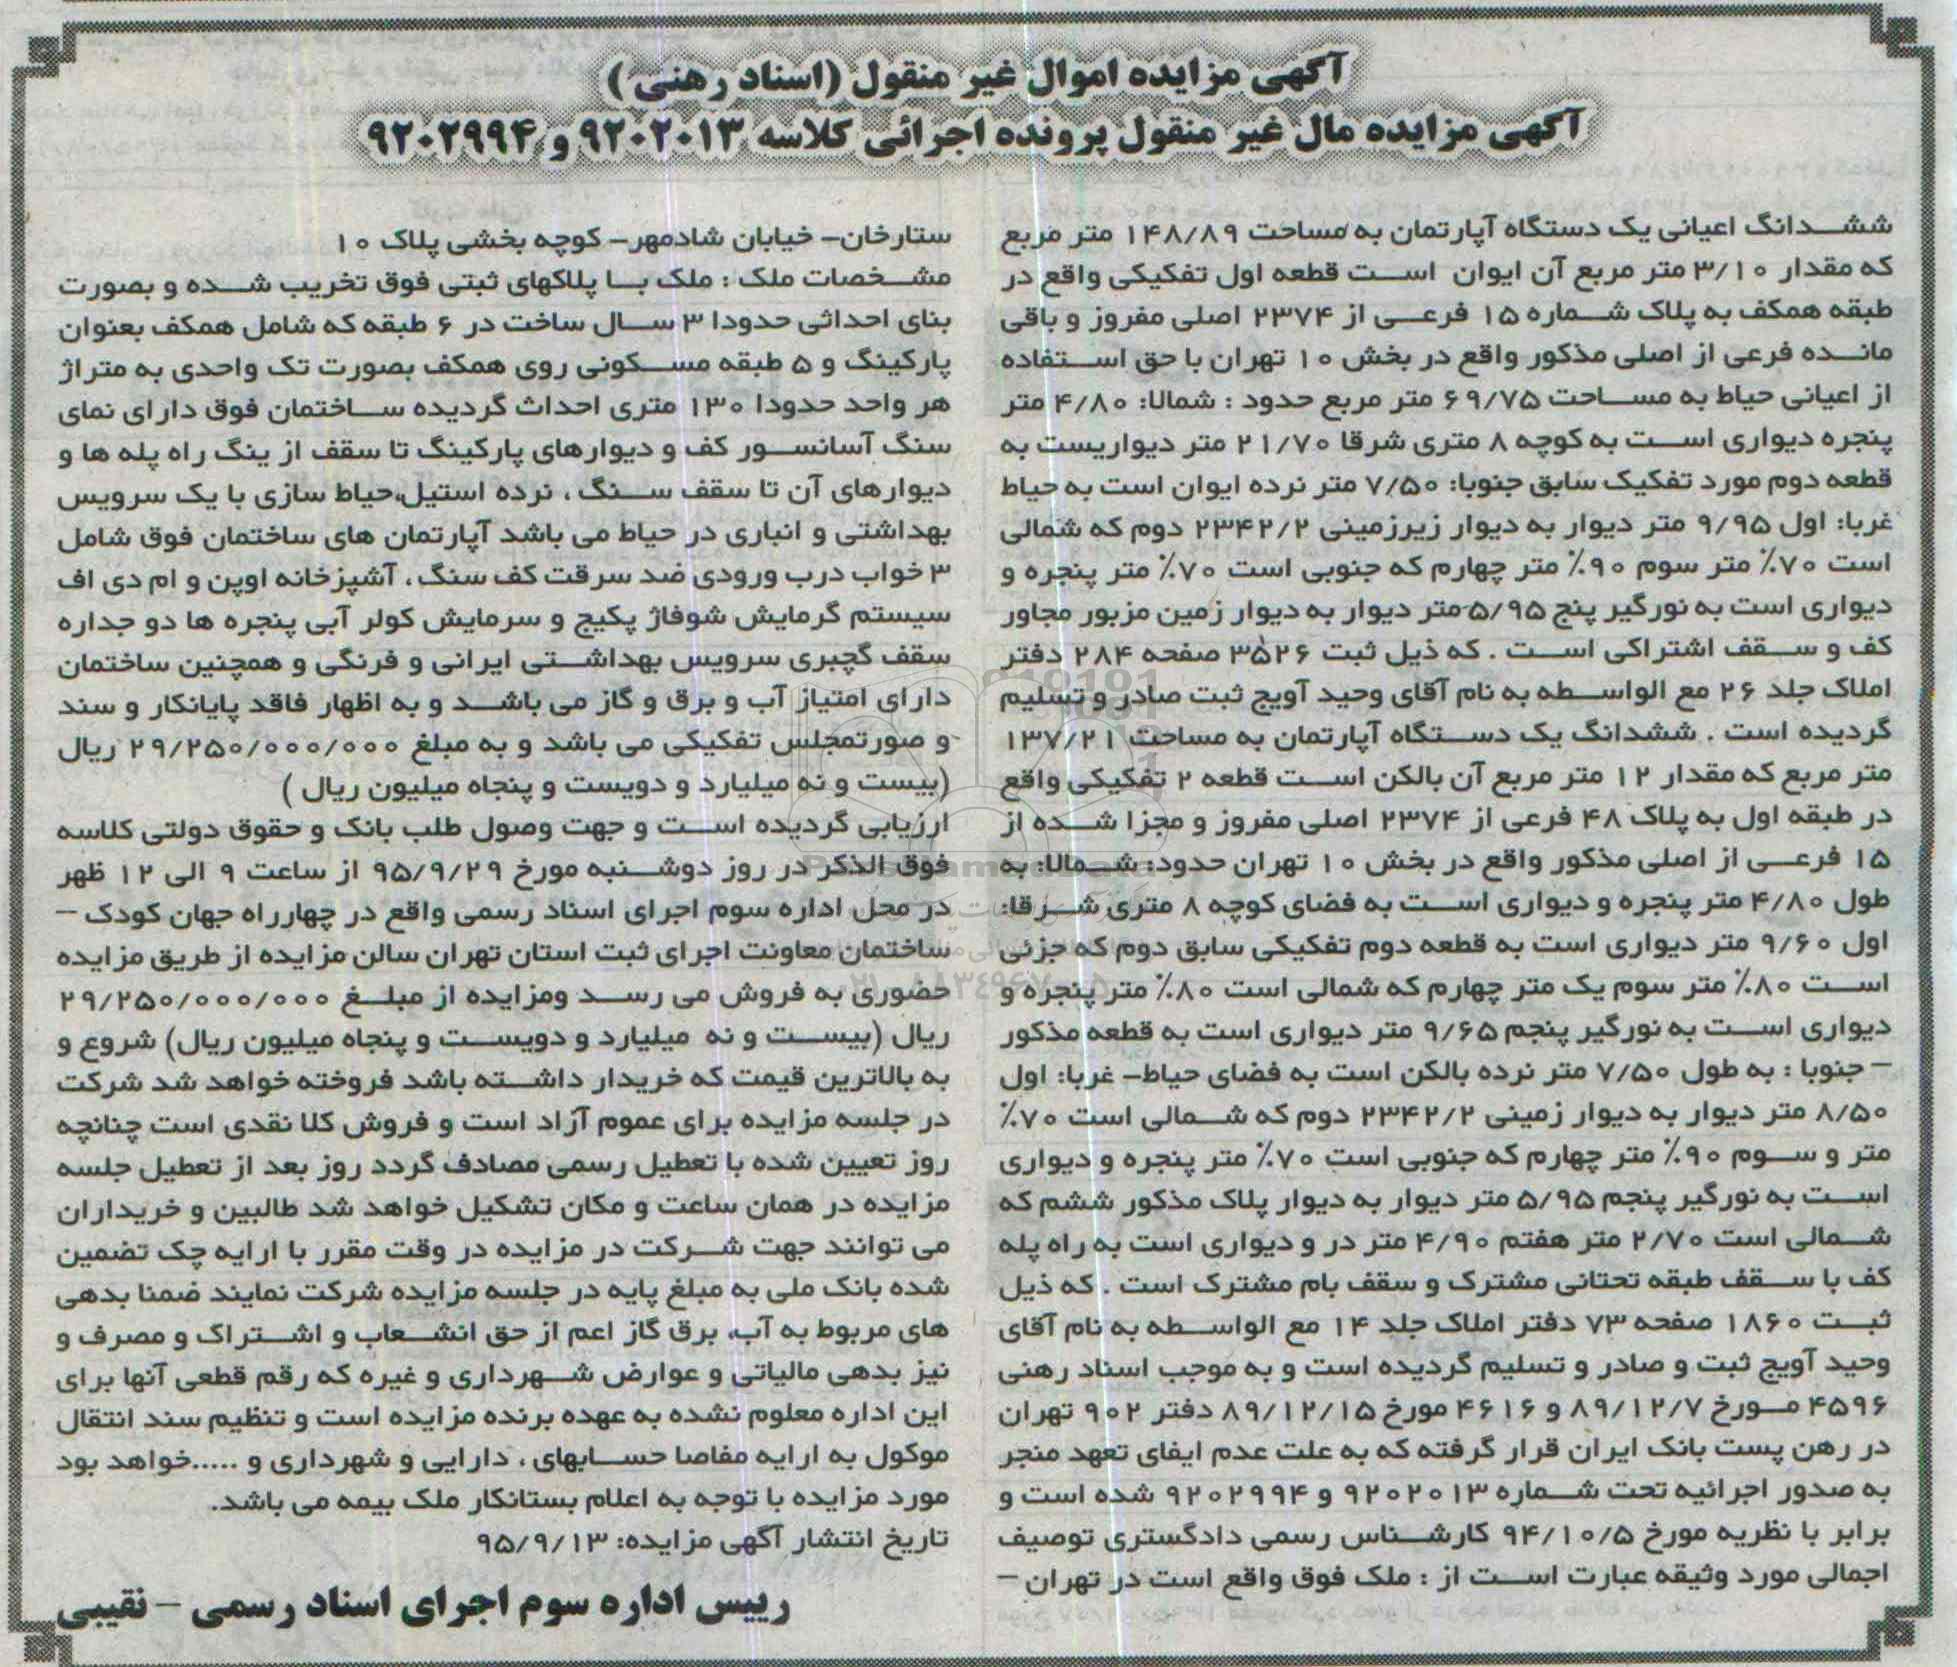 آگهی مزایده اموال غیر منقول (اسناد رهنی)
آگهی مزایده مال غیر منقول پرونده اجرائی کلاسه ۹۲۰۲۰۱۳ و ۹۲۰۲۹۹۴
ششدانگ اعیانی یک دستگاه آپارتمان به مساحت ۱۴۸/۸۹ متر مربع
که مقدار ۳/۱۰ متر مربع آن ایوان است قطعه اول تفکیکی واقع در
طبقه همکف به پلاک شماره ۱۵ فرعی از ۲۳۷۴ اصلی مفروز و باقی
مانده فرعی از اصلی مذکور واقع در بخش ۱۰ تهران با حق استفاده
از اعیانی حیاط به مساحت ۶۹/۷۵ متر مربع حدود : شمالا: ۴/۸۰ متر
پنجره دیواری است به کوچه ۸ متری شرقا ۲۱/۷۰ متر دیواریست به
قطعه دوم مورد تفکیک سابق جنوبا: ۷/۵۰ متر نرده ایوان است به حیاط
غربا: اول ۹/۹۵ متر دیوار به دیوار زیرزمینی ۲۳۴۲/۲ دوم که شمالی
است ۷۰٪ متر سوم ۹۰٪ متر چهارم که جنوبی است ۷۰٪ متر پنجره و
دیواری است به نورگیر پنج ۵/۹۵ متر دیوار به دیوار زمین مزبور مجاور
کف و سقف اشتراکی است . که ذیل ثبت ۳۵۲۶ صفحه ۲۸۴ دفتر
املاک جلد ۲۶ مع الواسطه به نام آقای وحید آویج ثبت صادر و تسلیم
گردیده است . ششدانگ یک دستگاه آپارتمان به مساحت ۱۳۷/۲۱
متر مربع که مقدار ۱۲ متر مربع آن بالکن است قطعه ۲ تفکیکی واقع
در طبقه اول به پلاک ۴۸ فرعی از ۲۳۷۴ اصلی مفروز و مجزا شده از
۱۵ فرعی از اصلی مذکور واقع در بخش ۱۰ تهران حدود: شمالا: به
طول ۴/۸۰ متر پنجره و دیواری است به فضای کوچه ۸ متری شرقا:
اول ۹/۶۰ متر دیواری است به قطعه دوم تفکیکی سابق دوم که جزئی
است ۸۰٪ متر سوم یک متر چهارم که شمالی است ۸۰٪ متر پنجره و
دیواری است به نورگیر پنجم ۹/۶۵ متر دیواری است به قطعه مذکور
– جنوبا : به طول ۷/۵۰ متر نرده بالکن است به فضای حیاط– غربا: اول
۸/۵۰ متر دیوار به دیوار زمینی ۲۳۴۲/۲ دوم که شمالی است ۷۰٪
متر و سوم ۹۰٪ متر چهارم که جنوبی است ۷۰٪ متر پنجره و دیواری
است به نورگیر پنجم ۵/۹۵ متر دیوار به دیوار پلاک مذکور ششم که
شمالی است ۲/۷۰ متر هفتم ۴/۹۰ متر در و دیواری است به راه پله
کف با سقف طبقه تحتانی مشترک و سقف بام مشترک است . که ذیل
ثبت ۱۸۶۰ صفحه ۷۳ دفتر املاک جلد ۱۴ مع الواسطه به نام آقای
وحید آویج ثبت و صادر و تسلیم گردیده است و به موجب اسناد رهنی
۴۵۹۶ مورخ ۸۹/۱۲/۷ و ۴۶۱۶ مورخ ۸۹/۱۲/۱۵ دفتر ۹۰۲ تهران
در رهن پست بانک ایران قرار گرفته که به علت عدم ایفای تعهد منجر
به صدور اجرائیه تحت شماره ۹۲۰۲۰۱۳ و ۹۲۰۲۹۹۴ شده است و
برابر با نظریه مورخ ۹۴/۱۰/۵ کارشناس رسمی دادگستری توصیف
اجمالی مورد وثیقه عبارت است از : ملک فوق واقع است در تهران –
ستارخان– خیابان شادمهر– کوچه بخشی پلاک ۱۰
مشخصات ملک : ملک با پلاکهای ثبتی فوق تخریب شده و بصورت
بنای احداثی حدودا ۳ سال ساخت در ۶ طبقه که شامل همکف بعنوان
پارکینگ و ۵ طبقه مسکونی روی همکف بصورت تک واحدی به متراژ
هر واحد حدودا ۱۳۰ متری احداث گردیده ساختمان فوق دارای نمای
سنگ آسانسور کف و دیوارهای پارکینگ تا سقف از ینگ راه پله ها و
دیوارهای آن تا سقف سنگ ، نرده استیل،حیاط سازی با یک سرویس
بهداشتی و انباری در حیاط می باشد آپارتمان های ساختمان فوق شامل
۳ خواب درب ورودی ضد سرقت کف سنگ ، آشپزخانه اوپن و ام دی اف
سیستم گرمایش شوفاژ پکیج و سرمایش کولر آبی پنجره ها دو جداره
سقف گچبری سرویس بهداشتی ایرانی و فرنگی و همچنین ساختمان
دارای امتیاز آب و برق و گاز می باشد و به اظهار فاقد پایانکار و سند
و صورتمجلس تفکیکی می باشد و به مبلغ ۲۹/۲۵۰/۰۰۰/۰۰۰ ریال
(بیست و نه میلیارد و دویست و پنجاه میلیون ریال )
ارزیابی گردیده است و جهت وصول طلب بانک و حقوق دولتی کلاسه
فوق الذکر در روز دوشنبه مورخ ۹۵/۹/۲۹ از ساعت ۹ الی ۱۲ ظهر
در محل اداره سوم اجرای اسناد رسمی واقع در چهارراه جهان کودک –
ساختمان معاونت اجرای ثبت استان تهران سالن مزایده از طریق مزایده
حضوری به فروش می رسد ومزایده از مبلغ ۲۹/۲۵۰/۰۰۰/۰۰۰
ریال (بیست و نه میلیارد و دویست و پنجاه میلیون ریال) شروع و
به بالاترین قیمت که خریدار داشته باشد فروخته خواهد شد شرکت
در جلسه مزایده برای عموم آزاد است و فروش کلا نقدی است چنانچه
روز تعیین شده با تعطیل رسمی مصادف گردد روز بعد از تعطیل جلسه
مزایده در همان ساعت و مکان تشکیل خواهد شد طالبین و خریداران
می توانند جهت شرکت در مزایده در وقت مقرر با ارایه چک تضمین
شده بانک ملی به مبلغ پایه در جلسه مزایده شرکت نمایند ضمنا بدهی
های مربوط به آب، برق گاز اعم از حق انشعاب و اشتراک و مصرف و
نیز بدهی مالیاتی و عوارض شهرداری و غیره که رقم قطعی آنها برای
این اداره معلوم نشده به عهده برنده مزایده است و تنظیم سند انتقال
موکول به ارایه مفاصا حسابهای ، دارایی و شهرداری و .....خواهد بود
مورد مزایده با توجه به اعلام بستانکار ملک بیمه می باشد.
تاریخ انتشار آگهی مزایده: ۹۵/۹/۱۳
رییس اداره سوم اجرای اسناد رسمی – نقیبی